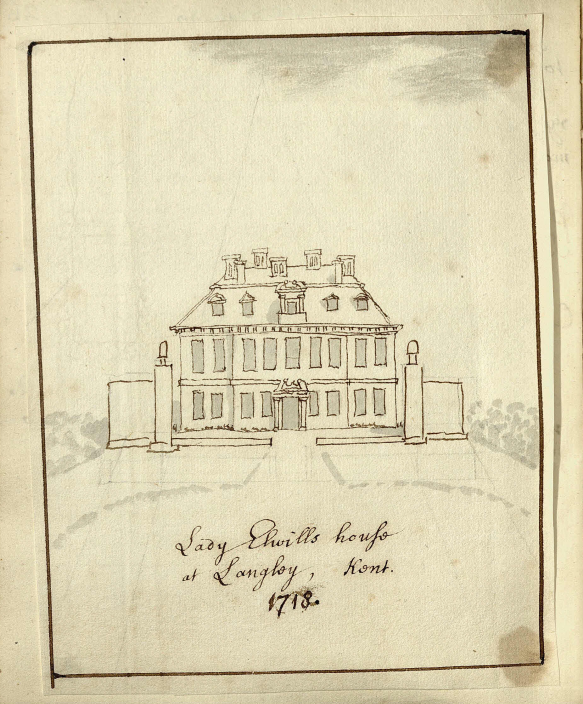 Lady Elwills house
at Langley, Kent.
1718.